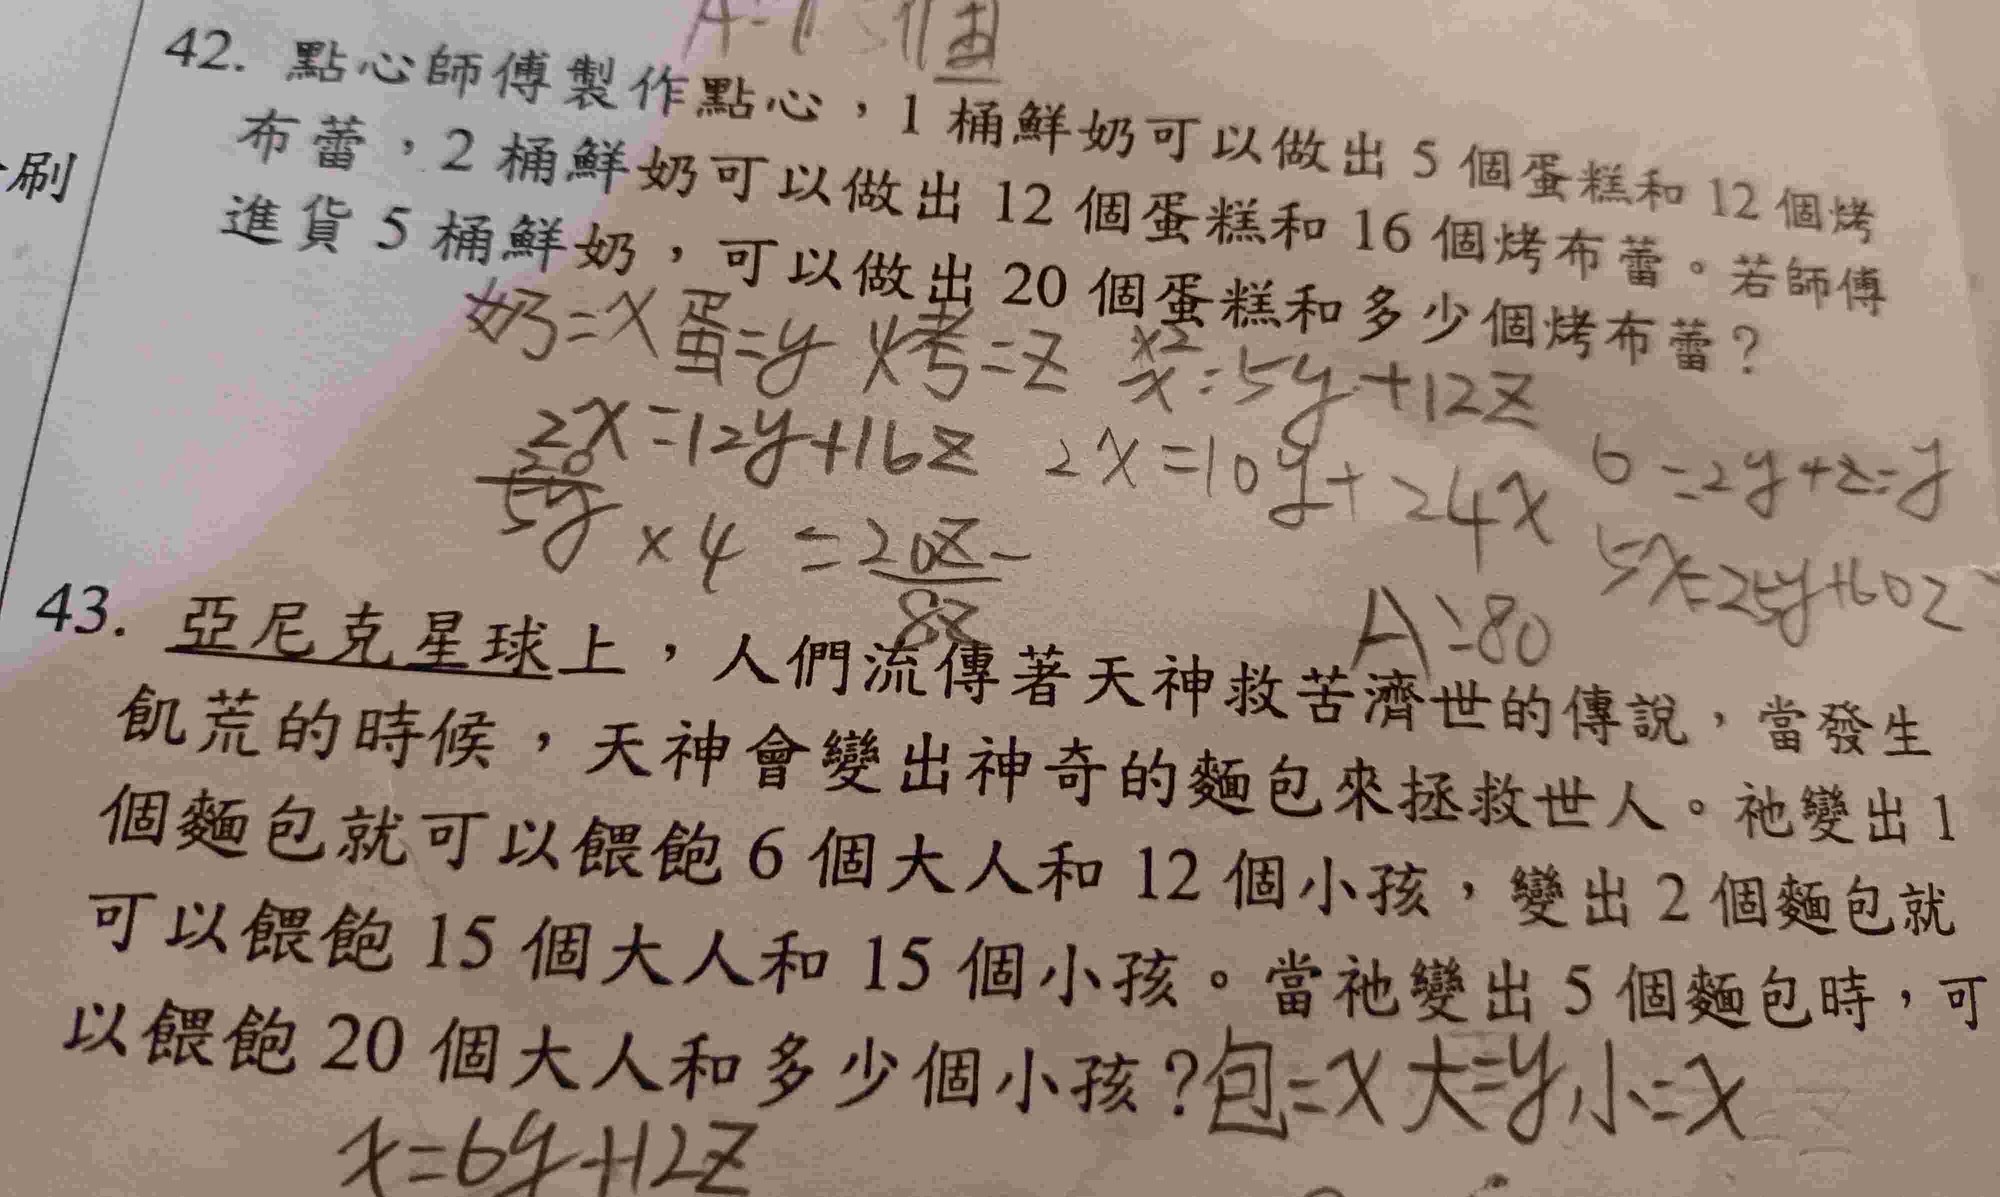 A=115個
42. 點心師傅製作點心，1 桶鮮奶可以做出 5 個蛋糕和 12 個烤
布蕾，2 桶鮮奶可以做出 12 個蛋糕和 16 個烤布蕾。若師傅
進貨 5 桶鮮奶，可以做出 20 個蛋糕和多少個烤布蕾？
刷
奶=x 蛋=y 烤=z x=5y+12z
×2
2x=12y+16z 2x=10y+24x 0=2y+z=y
20
5y ×4 =20z- 5x=25y+60z
8z
A=80
43. 亞尼克星球上，人們流傳著天神救苦濟世的傳說，當發生
飢荒的時候，天神會變出神奇的麵包來拯救世人。祂變出 1
個麵包就可以餵飽 6 個大人和 12 個小孩，變出 2 個麵包就
可以餵飽 15 個大人和 15 個小孩。當祂變出 5 個麵包時，可
以餵飽 20 個大人和多少個小孩？包=x 大=y 小=x
x=6y+12z